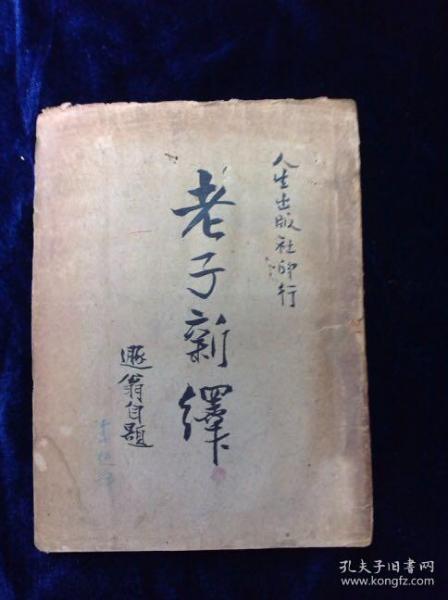 人生出版社印行
老子新繹
遯翁自題
孔夫子旧书网
www.kongfz.com